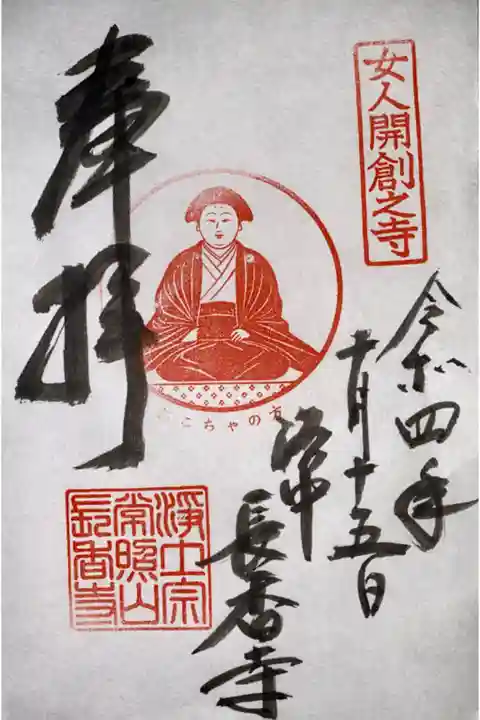 女人開創之寺
令和四年
十月十五日
洛中
長香寺
奉拝
こちゃの
淨土宗
常照山
長香寺